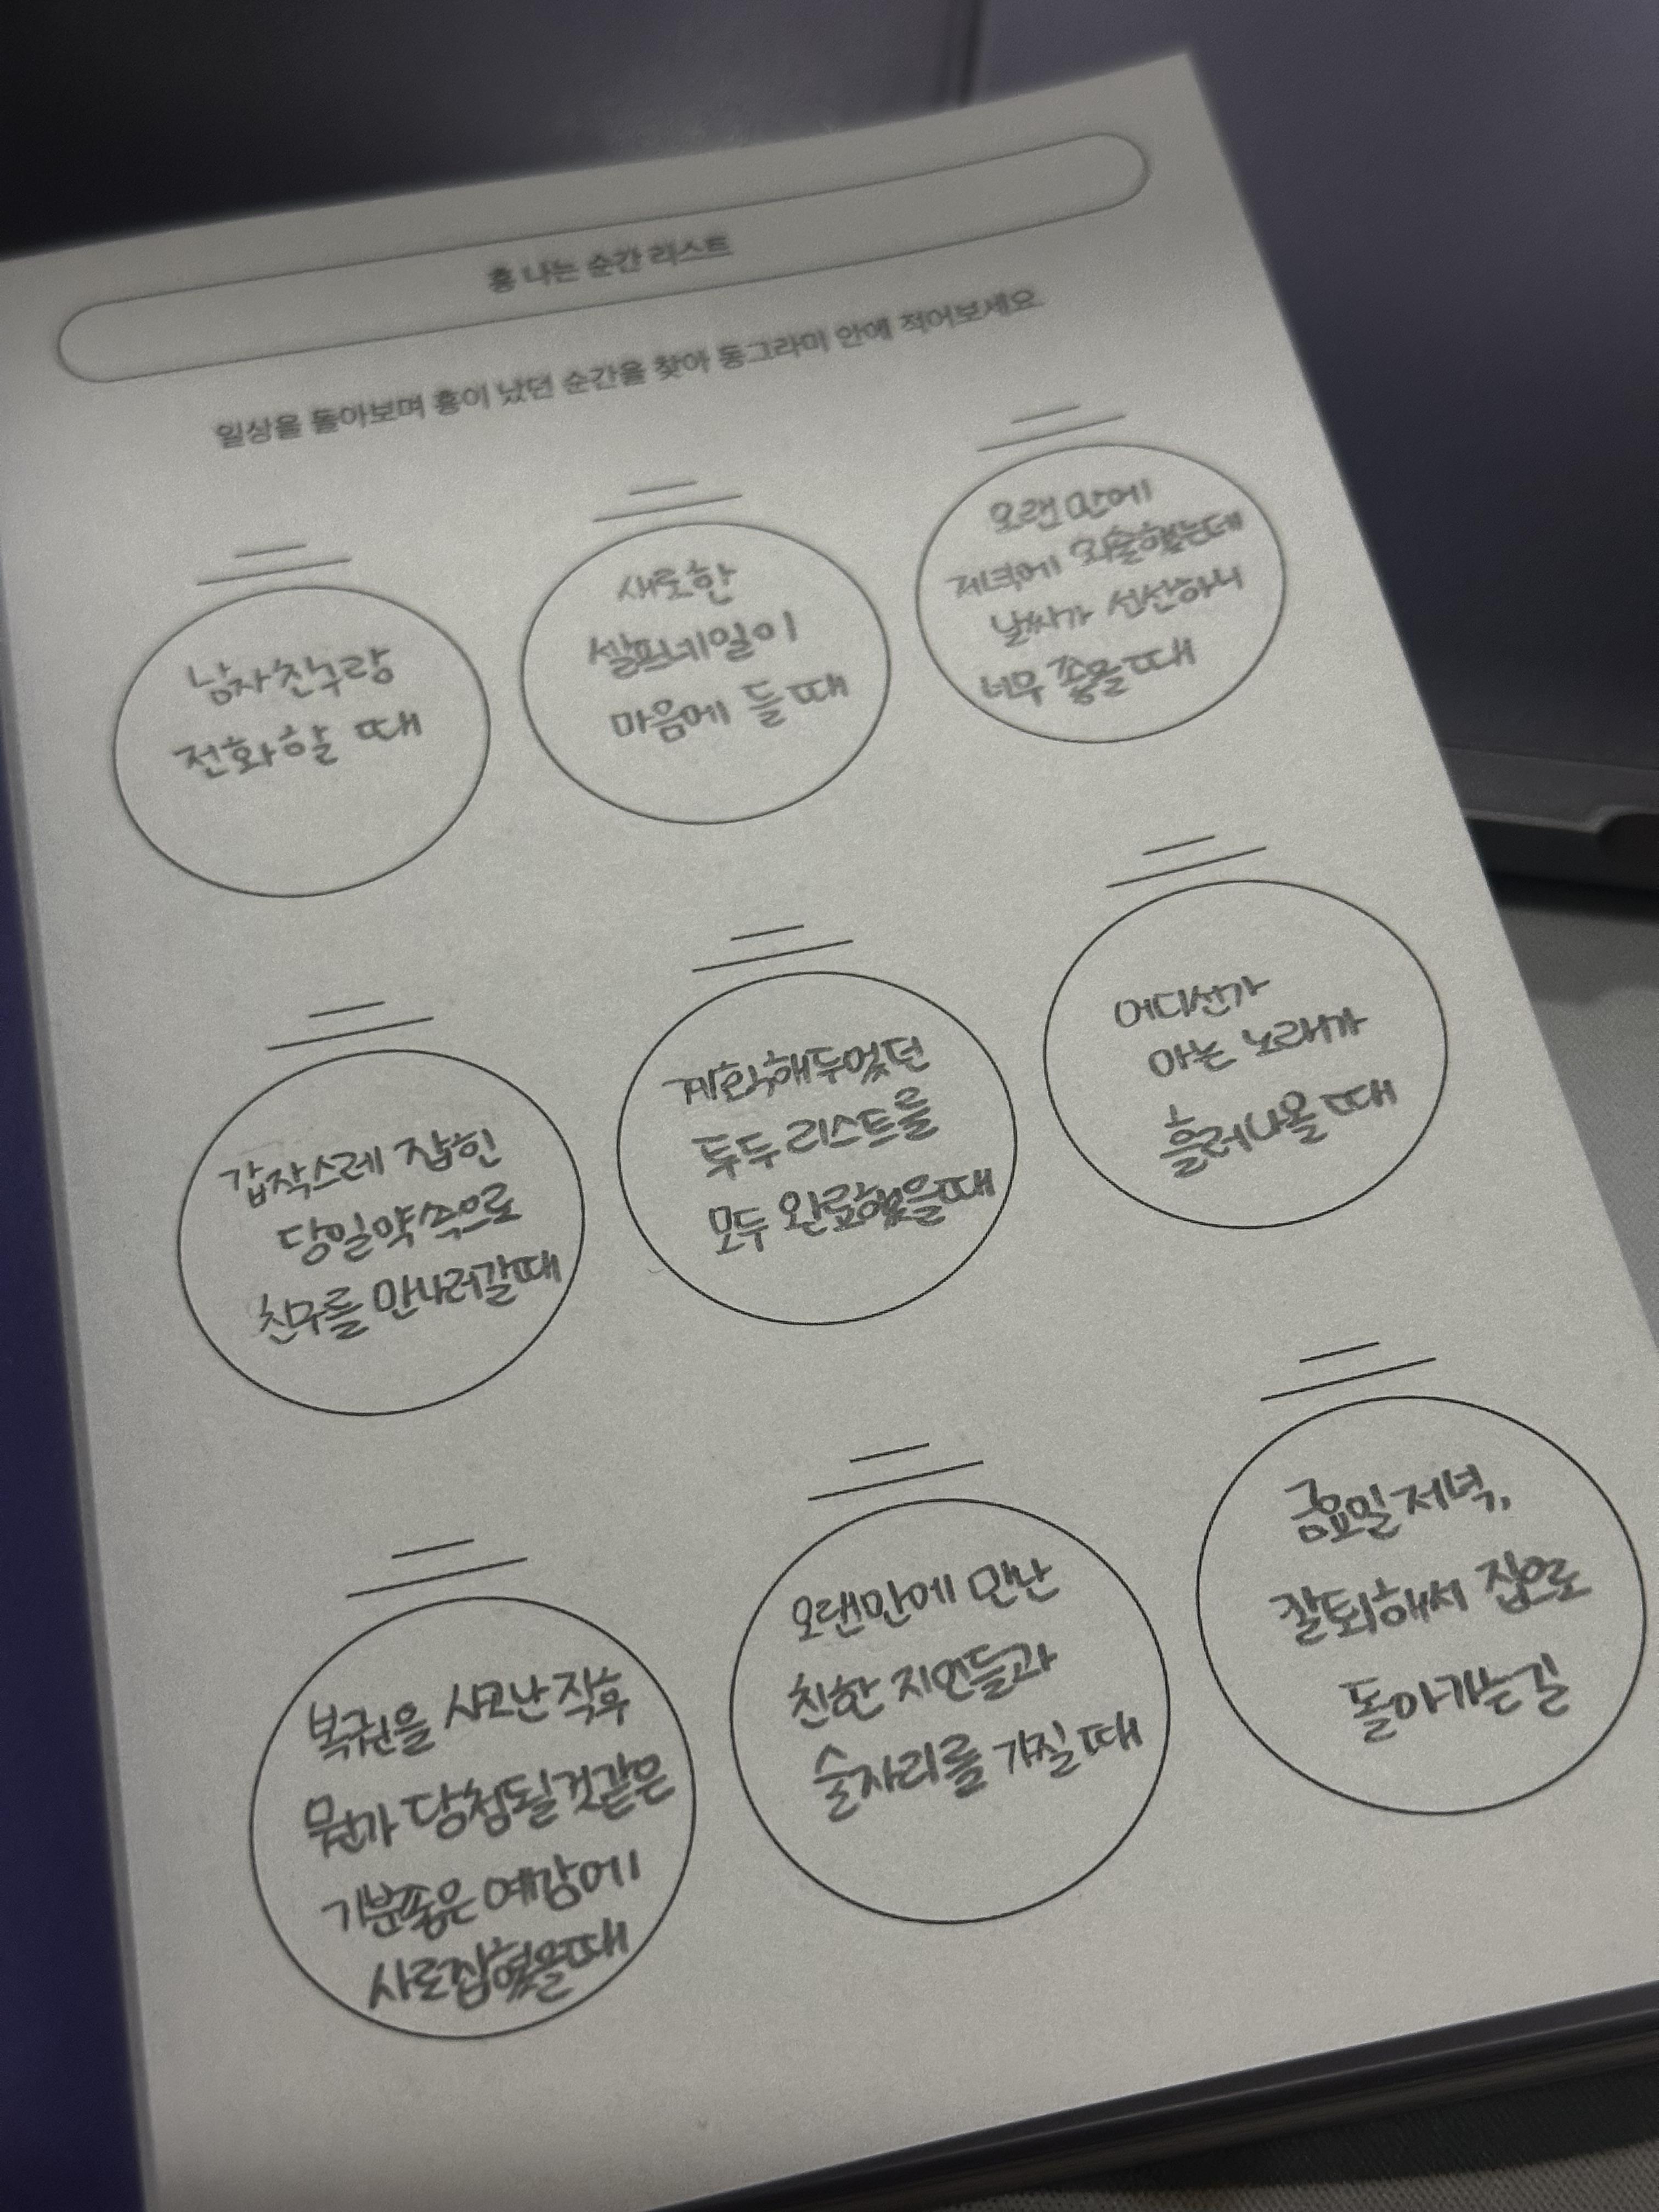 흥 나는 순간 리스트
일상을 돌아보며 흥이 났던 순간을 찾아 동그라미 안에 적어보세요.
남자친구랑
전화할 때
새로한
셀프네일이
마음에 들 때
오랜만에
저녁에 외출했는데
날씨가 선선하니
너무 좋을때
갑작스레 잡힌
당일약속으로
친구를 만나러갈때
계획해두었던
투두리스트를
모두 완료했을때
어디선가
아는 노래가
흘러나올 때
복권을 사고난 직후
뭔가 당첨될것같은
기분좋은 예감에
사로잡혔을때
오랜만에 만난
친한 지인들과
술자리를 가질 때
금요일 저녁,
칼퇴해서 집으로
돌아가는길